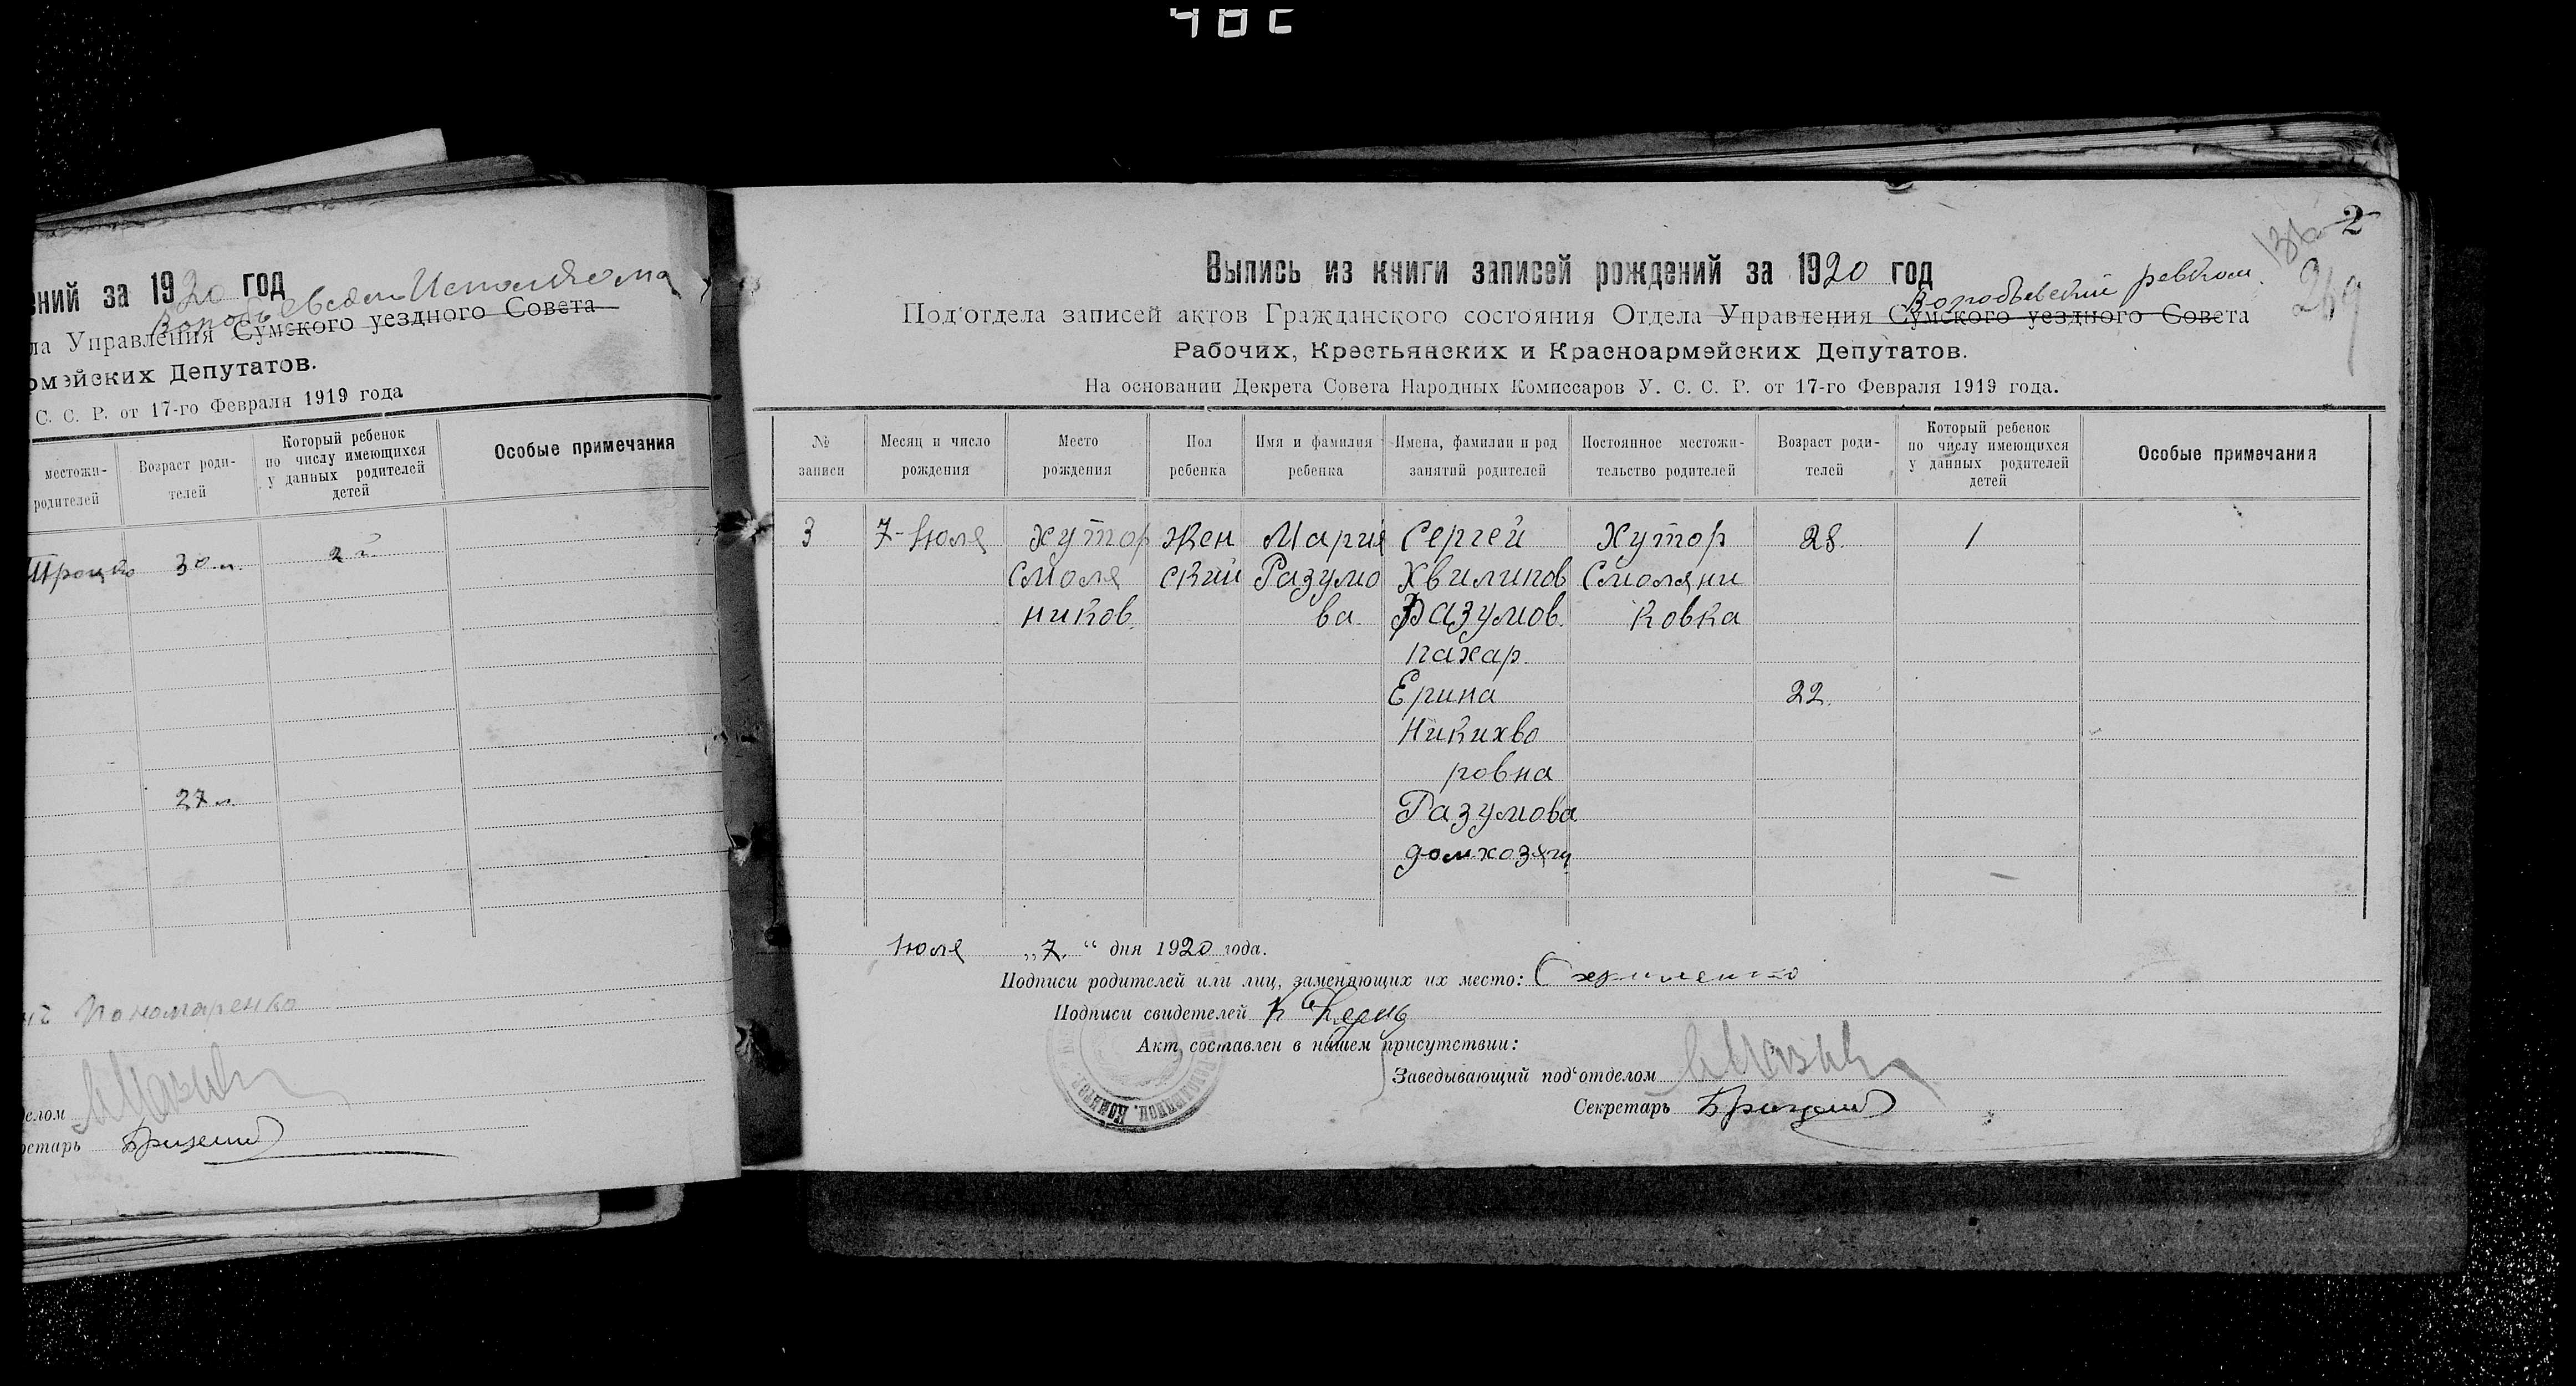 ений за 1920 год
ла Управления Сумского уездного Совета
рмейских Депутатов.
С. С. Р. от 17-го Февраля 1919 года
местожи-
родителей
Возраст роди-
телей
Который ребенок
по числу имеющихся
у данных родителей
детей
Особые примечания
30 л.
2й
27 л.
Пономаренко
делом
ретарь
2
Выпись из книги записей рождений за 1920 год
Воробьевский ревком
Под'отдела записей актов Гражданского состояния Отдела Управления Сумского уездного Совета
Рабочих, Крестьянских и Красноармейских Депутатов.
На основании Декрета Совета Народных Комиссаров У. С. С. Р. от 17-го Февраля 1919 года.
№
записи
Месяц и число
рождения
Место
рождения
Пол
ребенка
Имя и фамилия
ребенка
Имена, фамилии и род
занятий родителей
Постоянное местожи-
тельство родителей
Возраст роди-
телей
Который ребенок
по числу имеющихся
у данных родителей
детей
Особые примечания
3
7-Июля
хутор
Смоля
ников.
Жен
ский
Мария
Разумо
ва.
Сергей
Хвилипов
Разумов.
пахар.
Ерина
Никихво
ровна
Разумова
домхозяй
Хутор
Смоляни
ковка
28.
22.
1
Июля „7.“ дня 1920 года.
Подписи родителей или лиц, заменяющих их место:
Подписи свидетелей
Акт составлен в нашем присутствии:
Заведывающий под'отделом
Секретарь